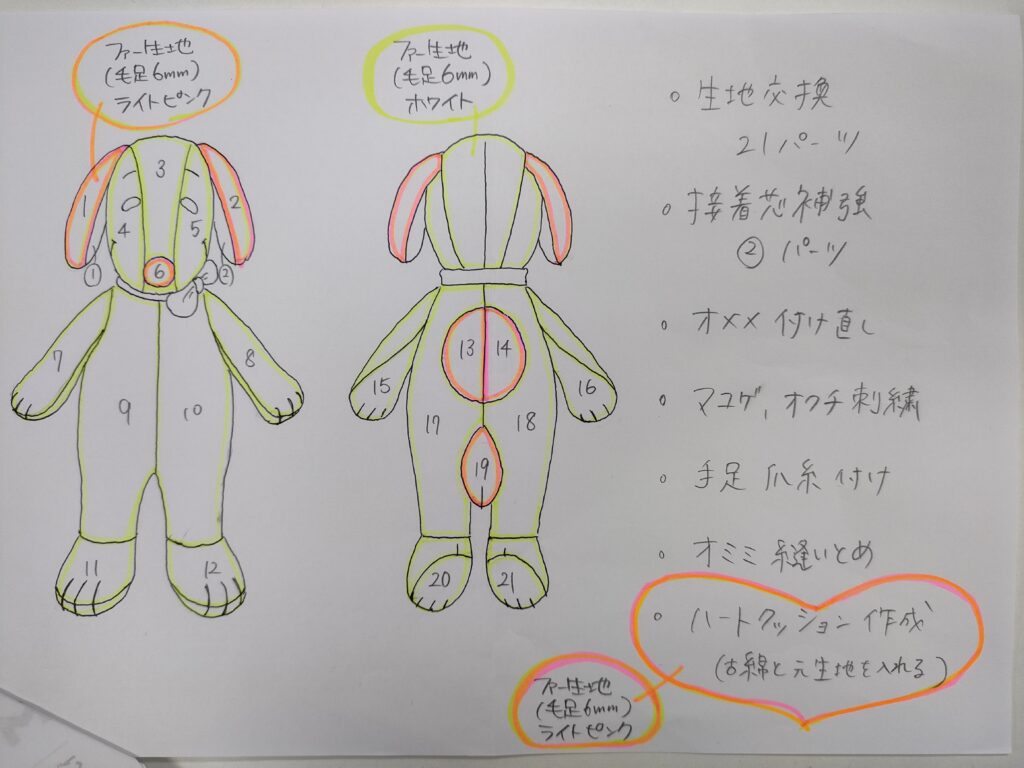 ファー生地
(毛足6mm)
ライトピンク
ファー生地
(毛足6mm)
ホワイト
1
2
3
4
5
6
①
②
7
8
9
10
11
12
13
14
15
16
17
18
19
20
21
○ 生地交換
21パーツ
○ 接着芯補強
② パーツ
○ オメメ 付け直し
○ マユゲ、オクチ刺繍
○ 手足 爪糸付け
○ オミミ 縫いとめ
○ ハートクッション作成
(古綿と元生地を入れる)
ファー生地
(毛足6mm)
ライトピンク